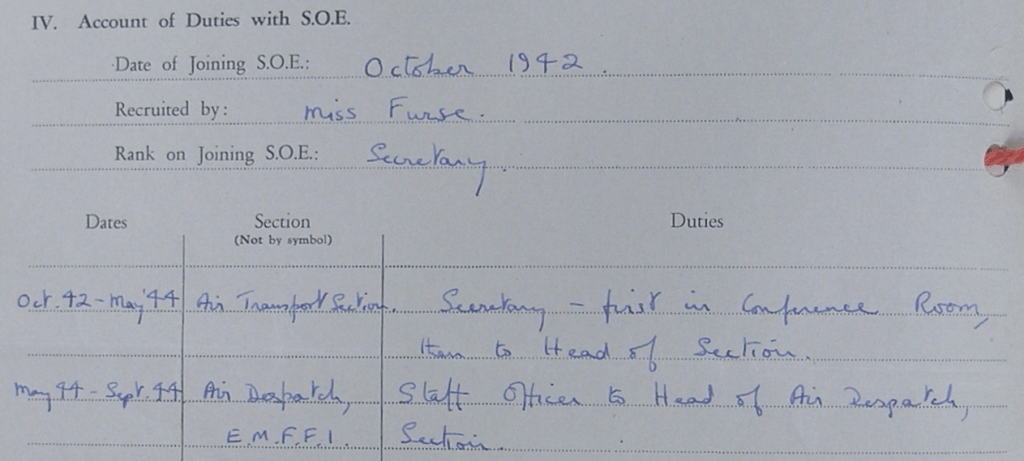 IV. Account of Duties with S.O.E.
Date of Joining S.O.E.: October 1942.
Recruited by: Miss Furse.
Rank on Joining S.O.E.: Secretary.
Dates Section Duties
(Not by symbol)
Oct. 42 - May '44 Air Transport Section. Secretary - first in Conference Room,
then to Head of Section.
May 44 - Sept. 44 Air Despatch, Staff Officer to Head of Air Despatch,
E.M.F.F.I. Section.